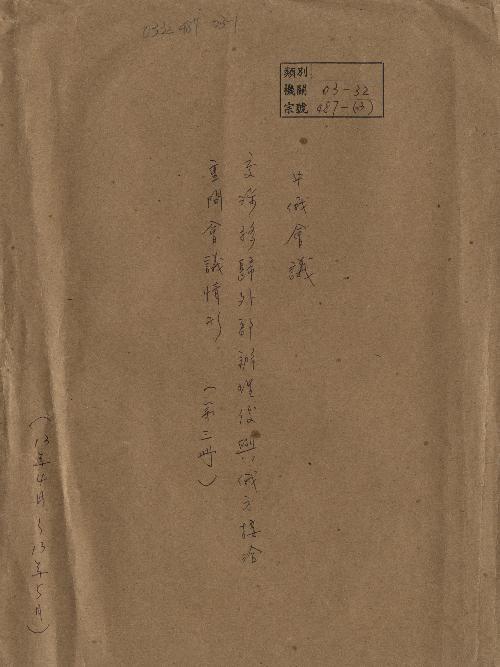 032 487 03-1
類別
機關 03-32
宗號 487-(3)
中俄會議
交涉移歸外部辦理後與俄方接洽
重開會議情形 (第三冊)
(13年4月至13年5月)